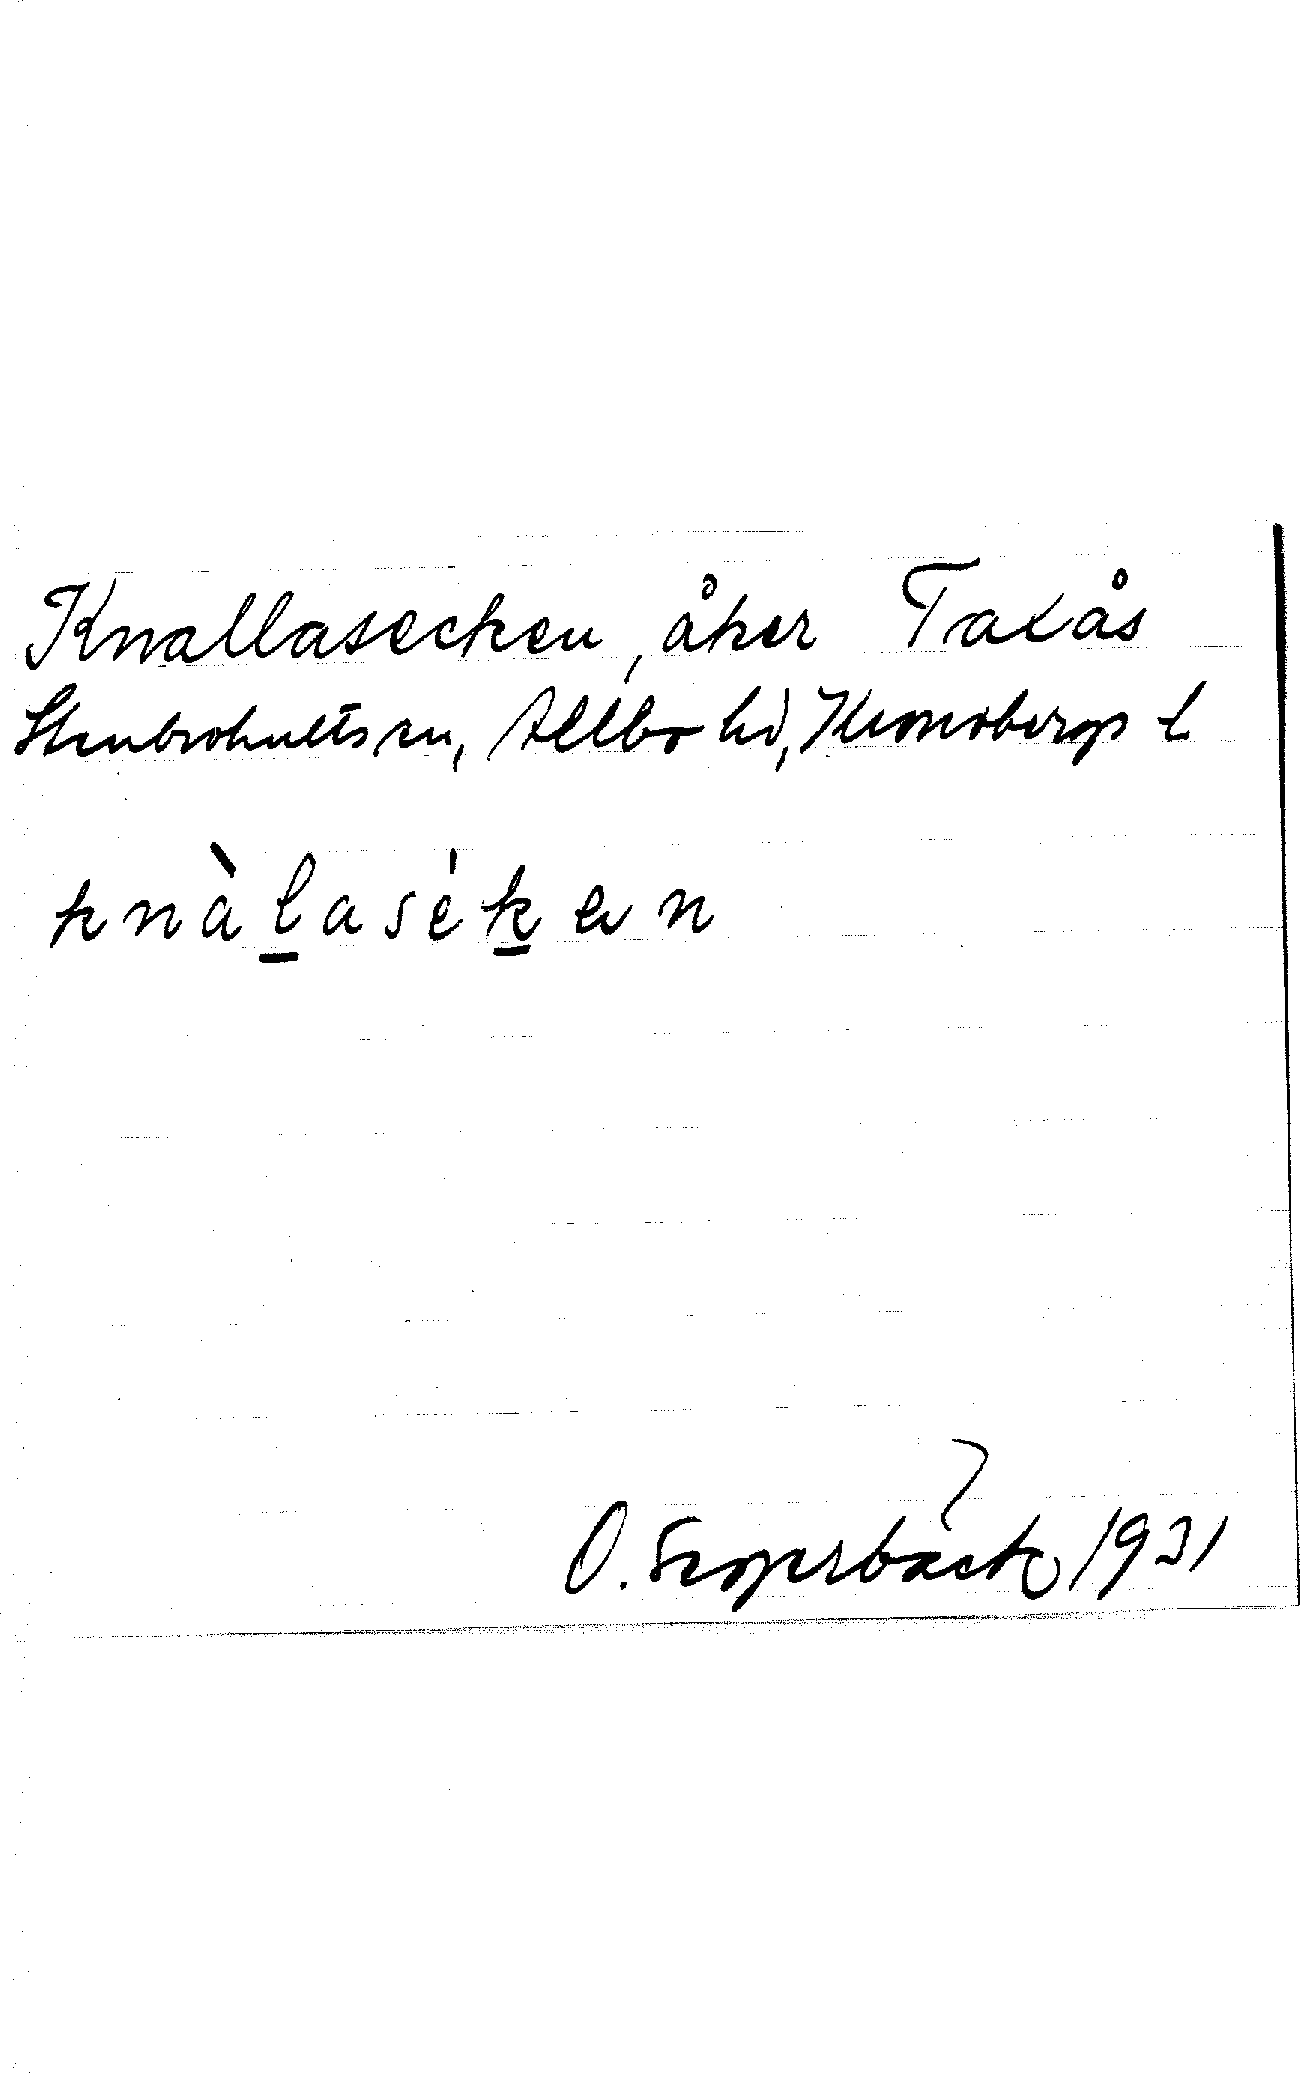 Knallasecken, åker Taxås
Stenbrohults sn, Allbo hd, Kronobergs l
knàl̲asék̲en
O. Groperbäck 1931